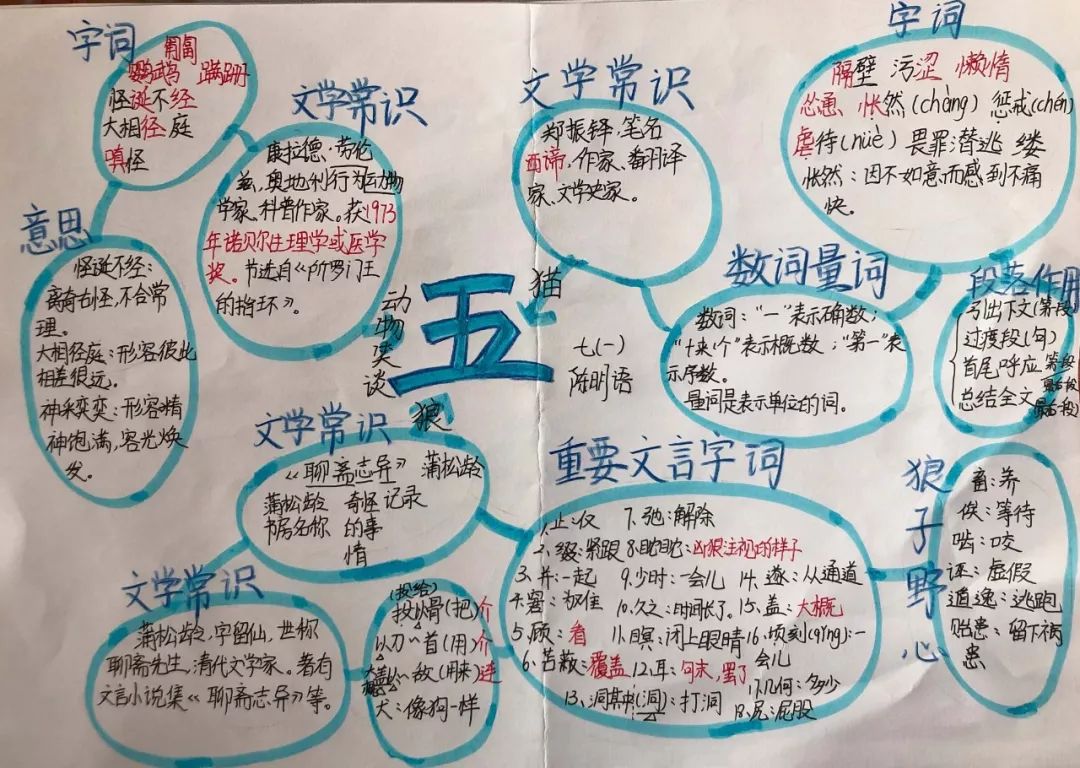 字词
匍匐
鹦鹉 蹒跚
怪诞不经
大相径庭
嗔怪
文学常识
康拉德·劳伦
兹,奥地利行为动物
学家、科普作家。获1973
年诺贝尔生理学或医学
奖。节选自《所罗门王
的指环》。
意思
怪诞不经:
离奇古怪,不合常
理。
大相径庭:形容彼此
相差很远。
神采奕奕:形容精
神饱满,容光焕
发。
五
动物笑谈
猫
狼
七(一)
陈明语
文学常识
郑振铎·笔名
西谛,作家、翻译
家、文学史家。
字词
隔壁 污涩 懒惰
怂恿 怅然(chàng) 惩戒(chén)
虐待(nüè) 畏罪潜逃 缕
怅然:因不如意而感到不痛
快。
数词量词
数词:“一”表示确数;
“十来个”表示概数;“第一”表
示序数。
量词是表示单位的词。
段落作用
引出下文(第一段)
过渡段(句)
首尾呼应 第一段 最后段
总结全文 最后段
文学常识
《聊斋志异》 蒲松龄
蒲松龄 奇怪 记录
书房名称 的事
情
文学常识
蒲松龄,字留仙,世称
聊斋先生,清代文学家。著有
文言小说集《聊斋志异》等。
(投给)
投以骨(把)介
以刀~首(用)介
~敌(用来)连
犬:像狗一样
重要文言字词
1.止:仅 7.弛:解除
2.缀:紧跟 8.眈眈:凶狠注视的样子
3.并:一起 9.少时:一会儿 14.遂:从通道
4.窘:困住 10.久之:时间长了 15.盖:大概
5.顾:看 11.暝:闭上眼睛 16.顷刻(qǐng):一
会儿
6.苫蔽:覆盖 12.耳:句末,罢了
13.洞其中(洞):打洞 17.几何:多少
18.尻:屁股
狼子野心
畜:养
俟:等待
啮:咬
诬:虚假
遁逸:逃跑
贻患:留下祸
患